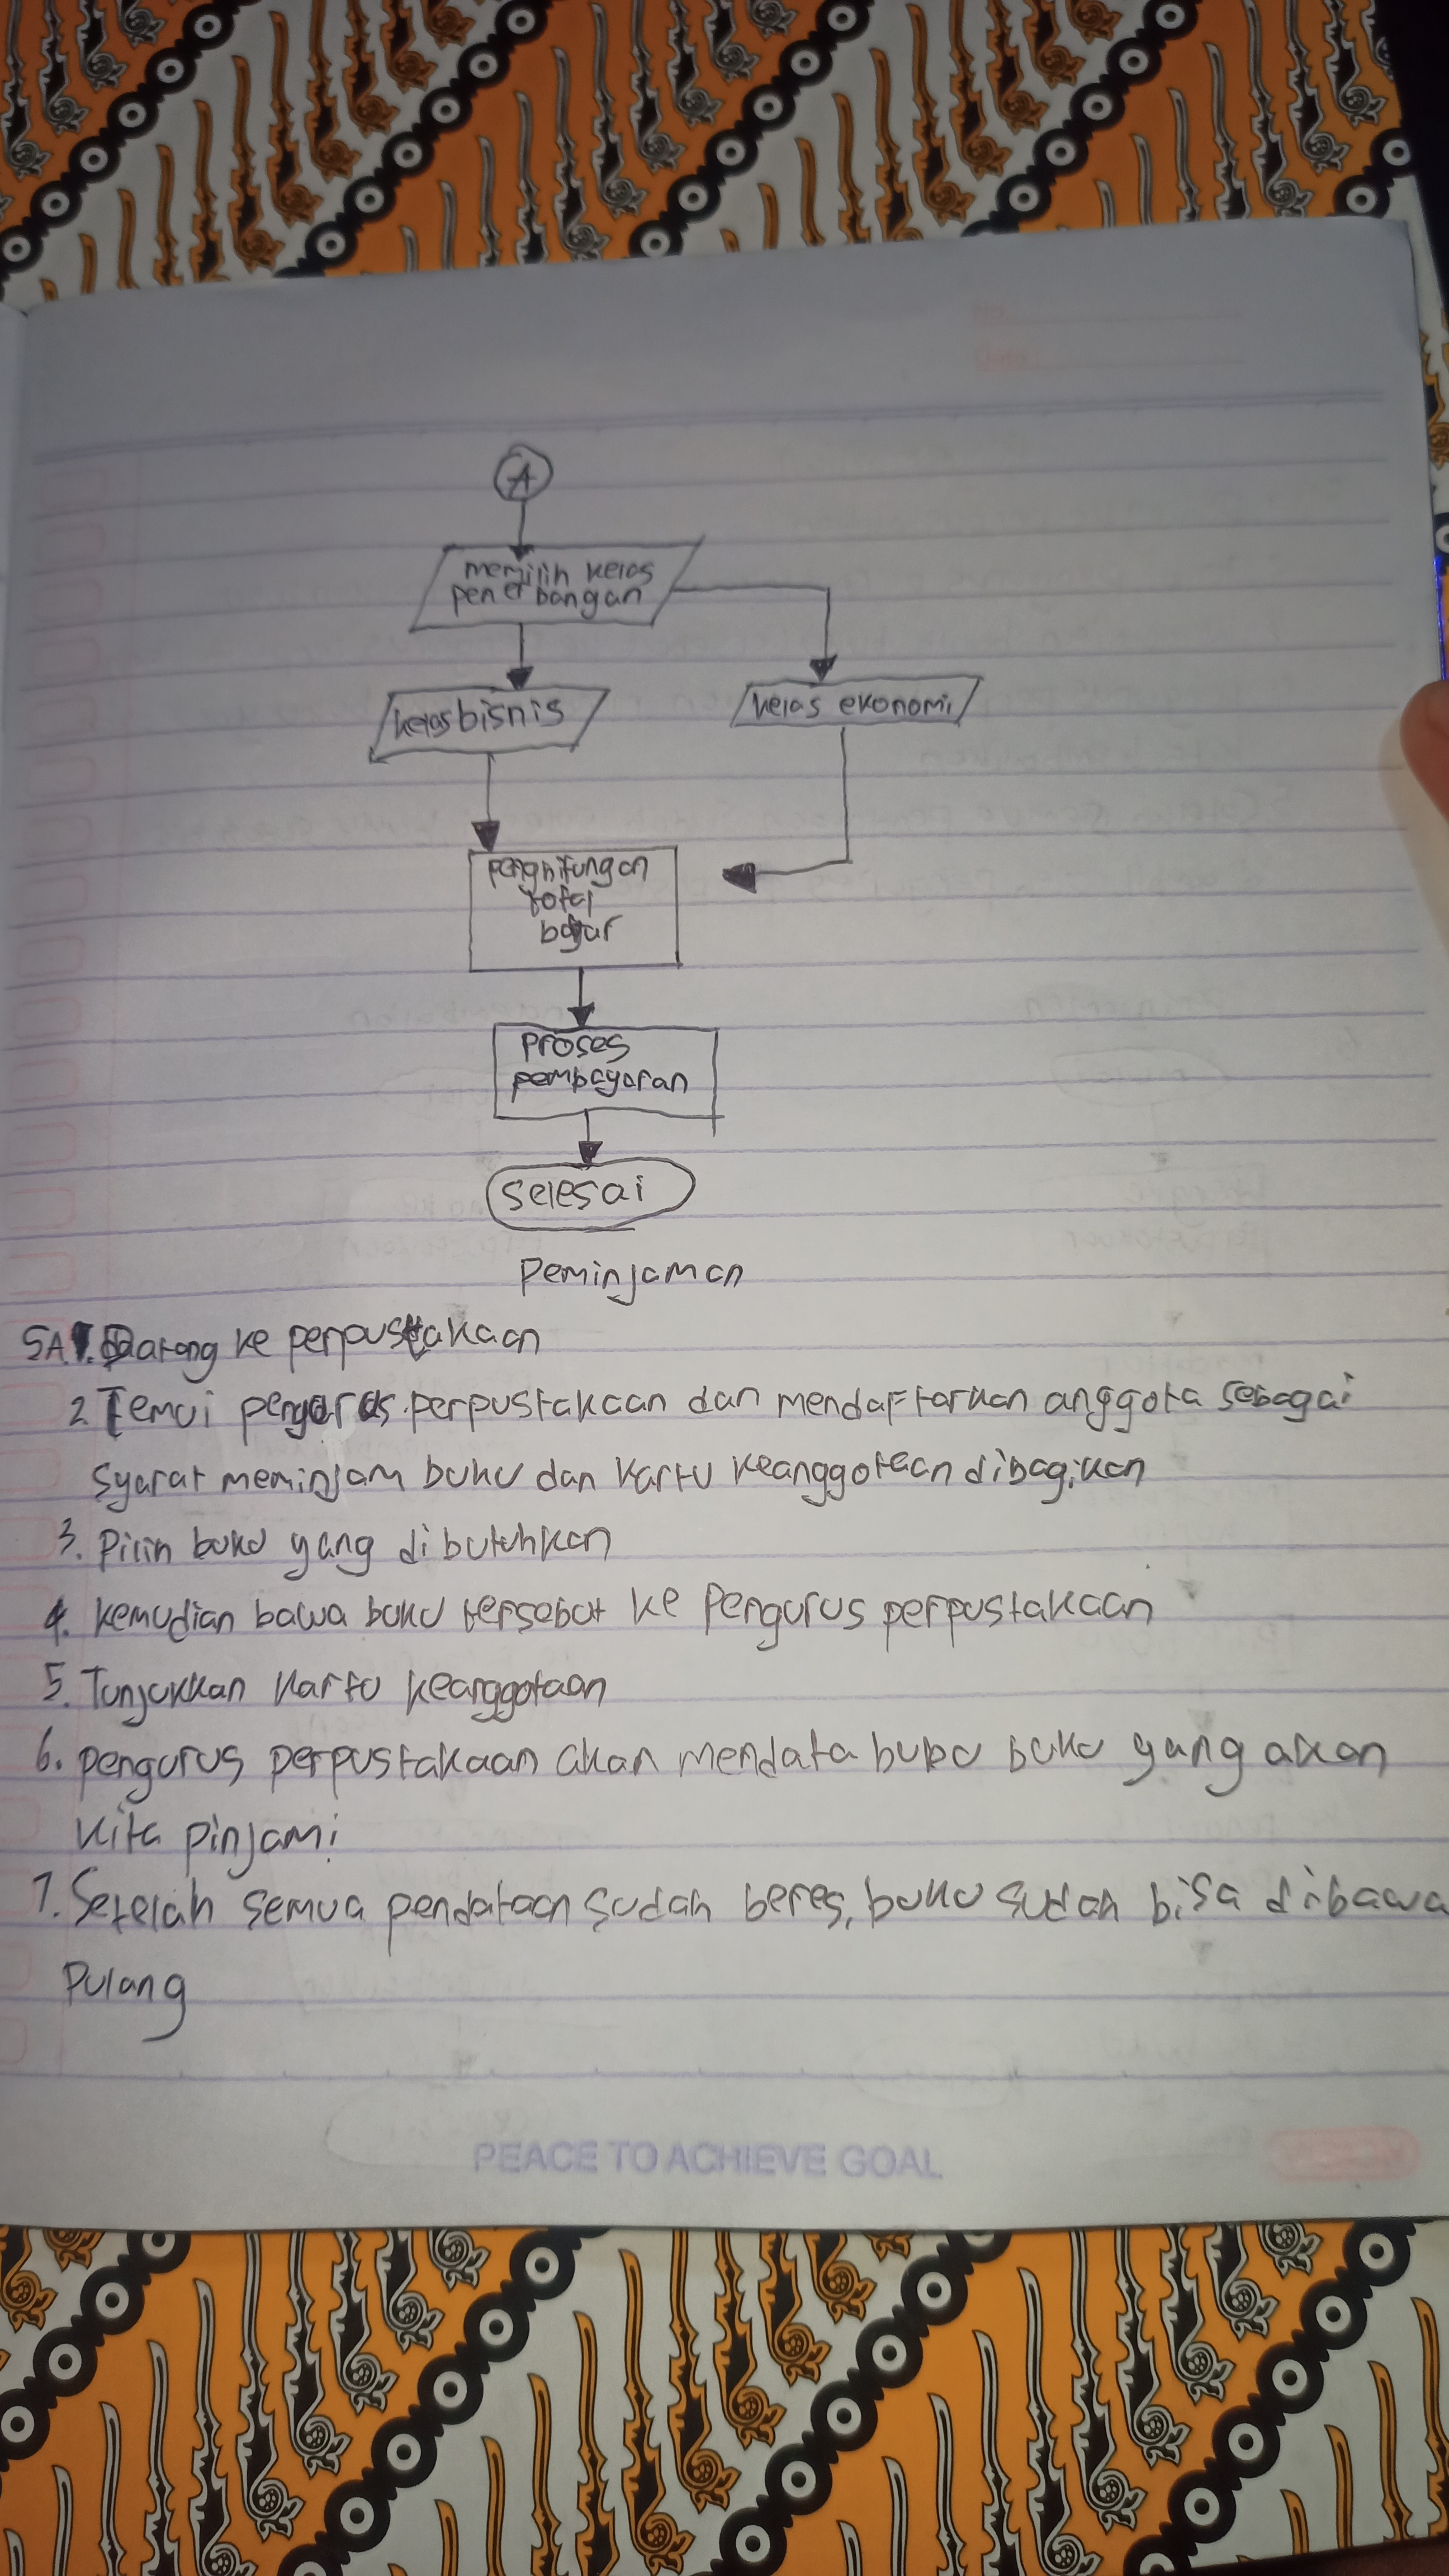 A
memilih kelas
penerbangan
kelas bisnis
kelas ekonomi
penghitungan
total
bayar
proses
pembayaran
selesai
Peminjaman
5A 1. Datang ke perpustakaan
2. Temui pengurus perpustakaan dan mendaftarkan anggota sebagai
syarat meminjam buku dan kartu keanggotaan dibagikan
3. Pilih buku yang dibutuhkan
4. kemudian bawa buku tersebut ke pengurus perpustakaan
5. Tunjukkan kartu keanggotaan
6. pengurus perpustakaan akan mendata buku buku yang akan
kita pinjami
7. Setelah semua pendataan sudah beres, buku sudah bisa dibawa
Pulang
PEACE TO ACHIEVE GOAL